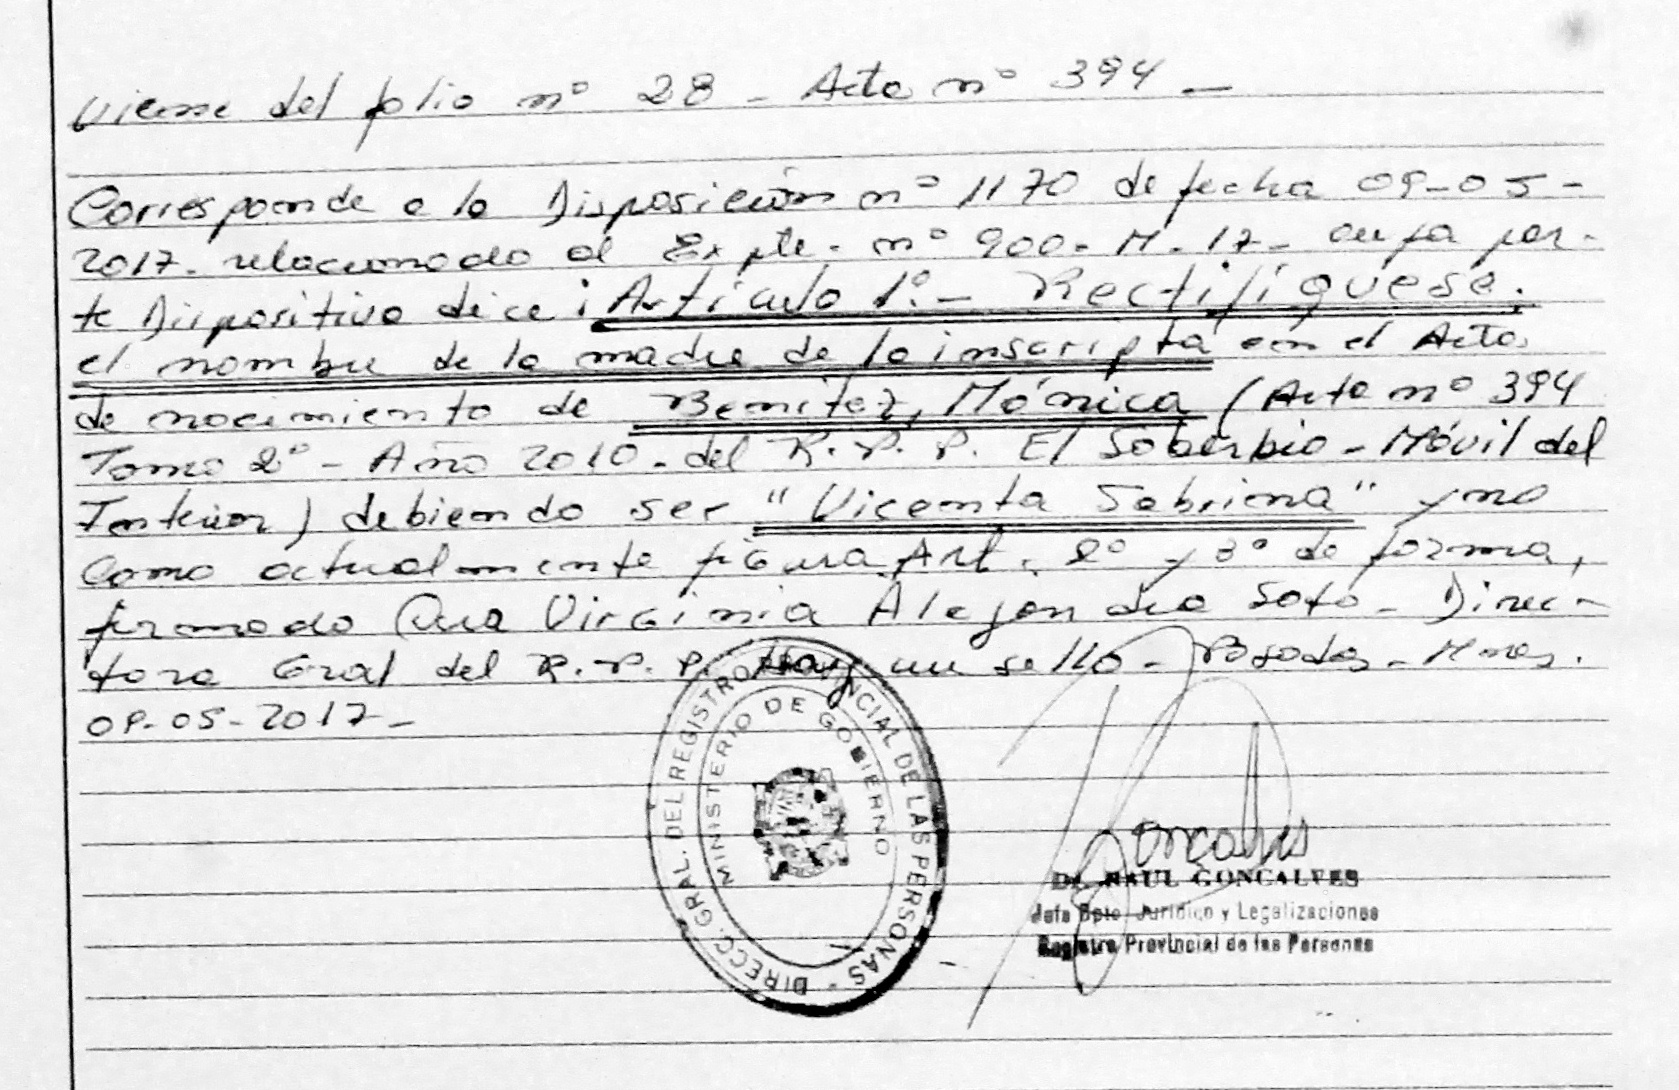 Viene del folio nº 28 - Acta nº 394 -
Corresponde a la Disposición nº 1170 de fecha 09-05-
2017. relacionado al Expte. nº 900-M-17- cuya par-
te Dispositiva dice: Artículo 1º.- Rectifíquese.
el nombre de la madre de la inscripta en el Acta
de nacimiento de Benitez, Mónica (Acta nº 394
Tomo 2º - Año 2010. del R.P.P. El Soberbio - Móvil del
Interior) debiendo ser "Vicenta Sabrina" y no
como actualmente figura. Art. 2º y 3º de forma,
firmado Dra Virginia Alejandra Soto - Direc-
tora Gral del R.P.P. Hay un sello - Posadas - Mnes.
09-05-2017-
DIRECC. GRAL. DEL REGISTRO PROVINCIAL DE LAS PERSONAS
MINISTERIO DE GOBIERNO
Goncalves
Dr. RAUL GONCALVES
Jefe Dpto. Jurídico y Legalizaciones
Registro Provincial de las Personas